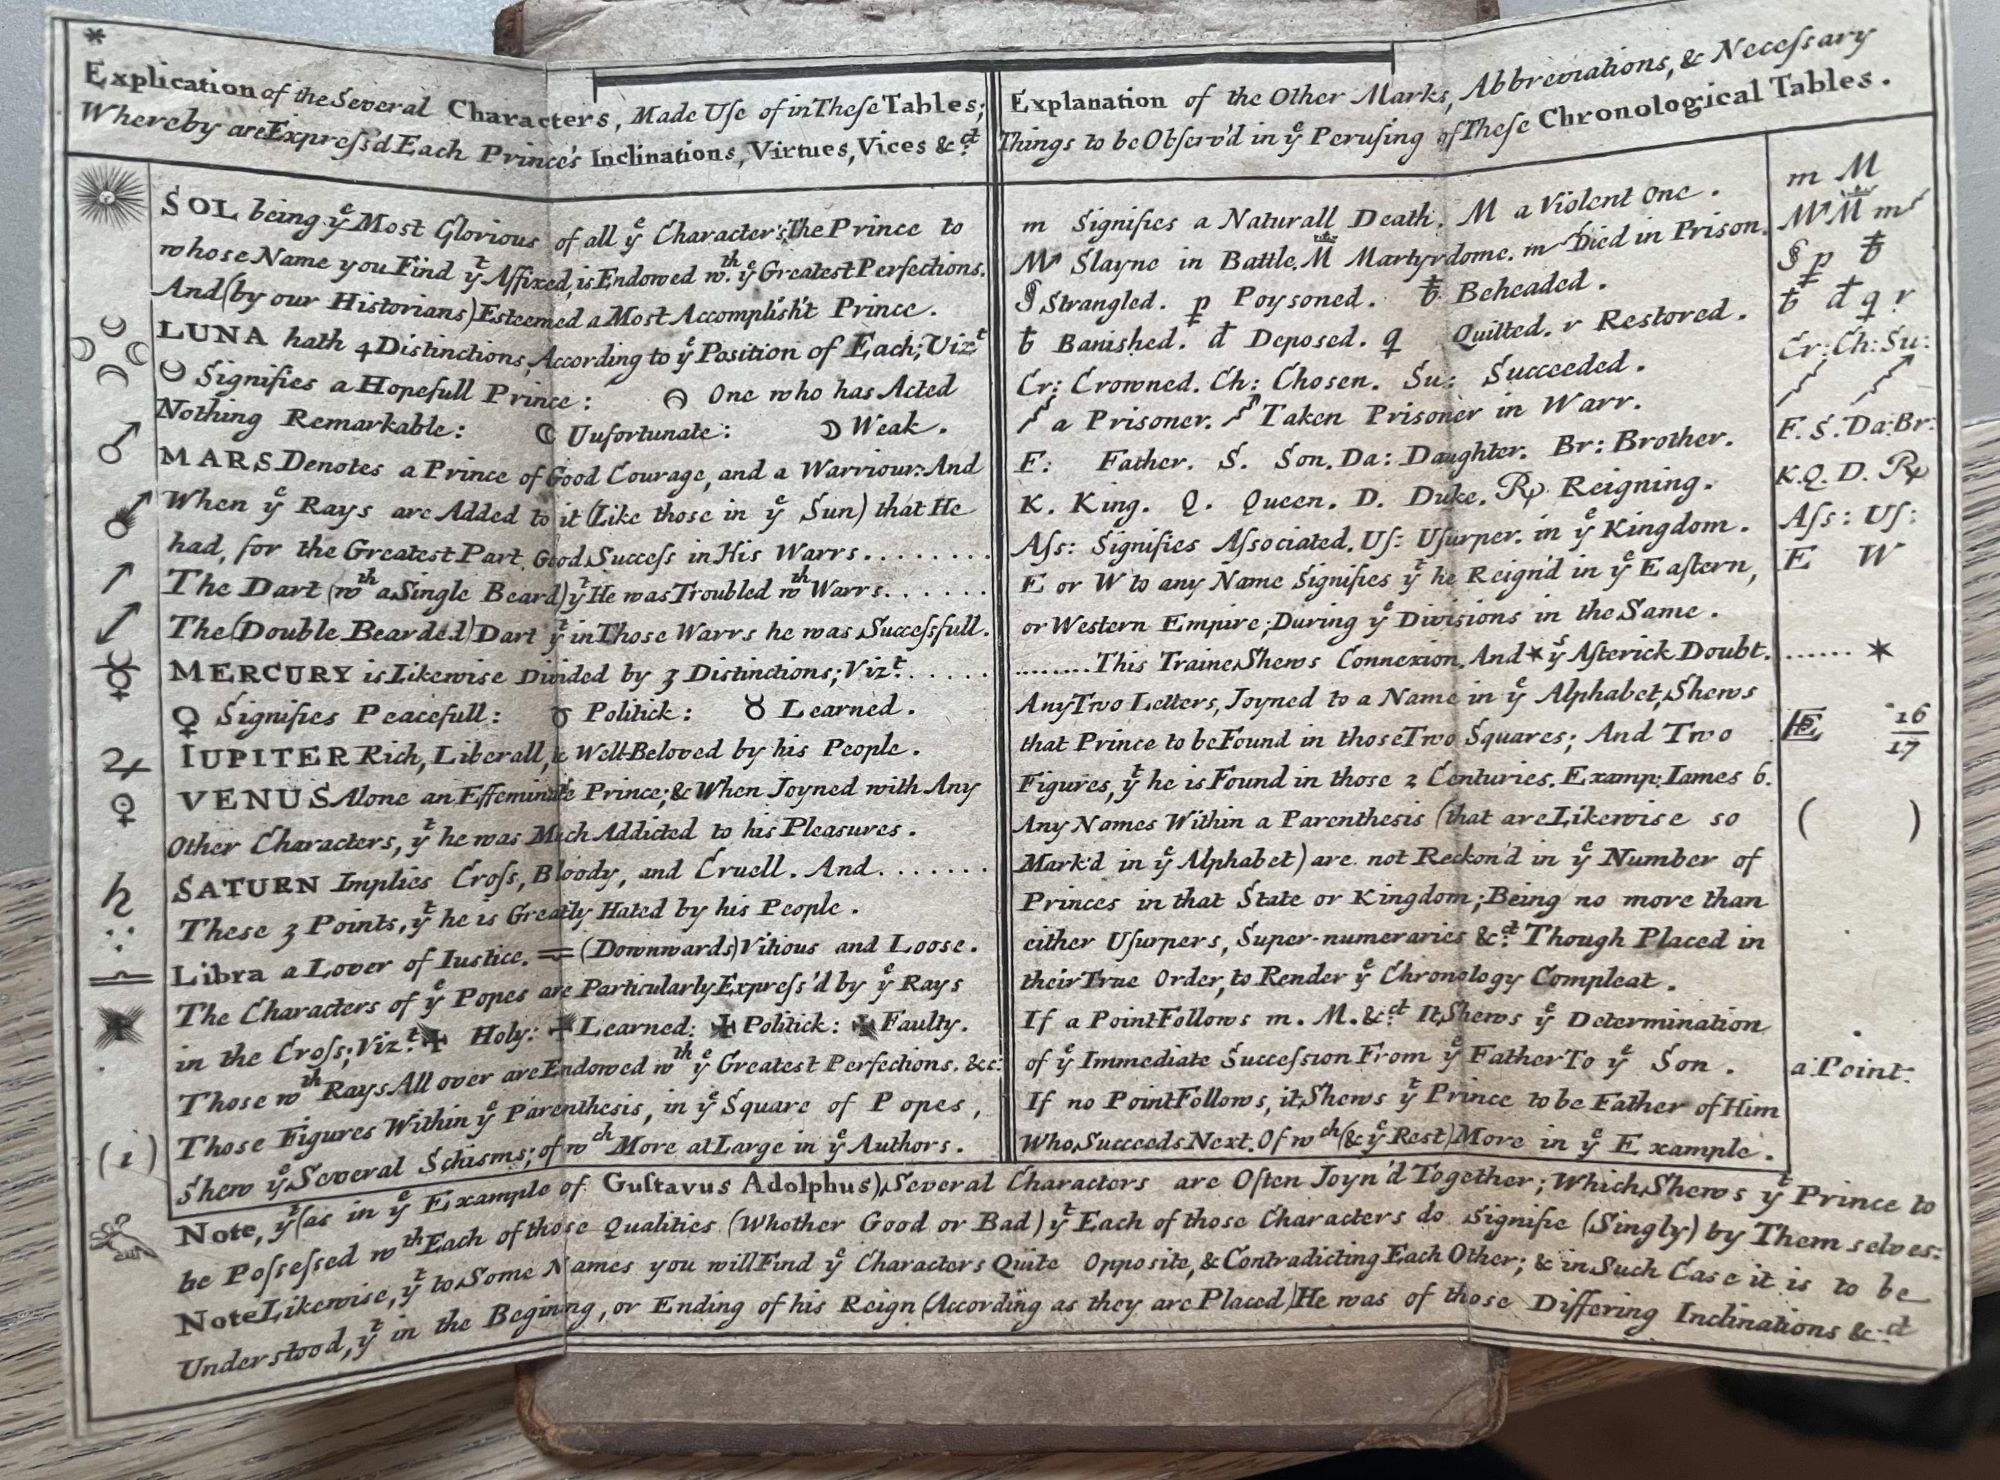 *
Explication of the Several Characters, Made Uſe of in Theſe Tables;
Whereby are Expreſs'd Each Prince's Inclinations, Virtues, Vices &ct.
SOL being ye Most Glorious of all ye Character's, The Prince to
whose Name you Find yt Affixed, is Endowed wth. ye Greatest Perfections.
And (by our Historians) Esteemed a Most Accomplish't Prince.
LUNA hath 4 Distinctions, According to ye Position of Each; Vizt
Signifies a Hopefull Prince: One who has Acted
Nothing Remarkable: ☾ Unfortunate: ☽ Weak.
♂ MARS Denotes a Prince of Good Courage, and a Warriour: And
When ye Rays are Added to it (Like those in ye Sun) that He
had, for the Greatest Part Good Succeſs in His Warrs........
The Dart (wth a Single Beard) yt He was Troubled wth Warrs......
The (Double Bearded) Dart yt in Those Warrs he was Succeſsfull.
☿ MERCURY is Likewise Divided by 3 Distinctions; Vizt.....
♀ Signifies Peacefull: ♉ Politick: ♉ Learned.
♃ IUPITER Rich, Liberall, & Well-Beloved by his People.
VENUS Alone an Effeminate Prince; & When Joyned with Any
Other Characters, yt he was Much Addicted to his Pleasures.
♄ SATURN Implies Croſs, Bloody, and Cruell. And.......
These 3 Points, yt he is Greatly Hated by his People.
♎ Libra a Lover of Iustice. (Downwards) Vitious and Loose.
The Characters of ye Popes are Particularly Expreſs'd by ye Rays
in the Croſs; Vizt. ✠ Holy: ✠ Learned: ✠ Politick: ✠ Faulty.
Those wth Rays All over are Endowed wth ye Greatest Perfections. &c:
(1) Those Figures Within ye Parenthesis, in ye Square of Popes,
shew ye Several Schisms; of wch More at Large in ye Authors.
Explanation of the Other Marks, Abbreviations, & Neceſsary
Things to be Obſerv'd in ye Peruſing of Theſe Chronological Tables.
m Signifies a Naturall Death. M a Violent One. m M
M Slayne in Battle. M Martyrdome. m Died in Prison. M M m
§ Strangled. p Poysoned. ƀ Beheaded. § p ƀ
ƀ Banished. đ Deposed. q Quitted. r Restored. ƀ đ q r
Cr: Crowned. Ch: Chosen. Su: Succeeded. Cr: Ch: Su:
a Prisoner. Taken Prisoner in Warr.
F: Father. S. Son. Da: Daughter. Br: Brother. F. S. Da: Br:
K. King. Q. Queen. D. Duke. R Reigning. K. Q. D. R
Aſs: Signifies Aſsociated. Uſ: Uſurper. in ye Kingdom. Aſs: Uſ:
E or W to any Name Signifies yt he Reign'd in ye Eaſtern, E W
or Western Empire; During ye Divisions in the Same.
........This Traine Shews Connexion. And ✶ ye Aſterick Doubt. ...... ✶
Any Two Letters, Joyned to a Name in ye Alphabet, Shews
that Prince to be Found in those Two Squares; And Two 16/17
Figures, yt he is Found in those 2 Centuries. Examp: Iames 6.
Any Names Within a Parenthesis (that are Likewise so ( )
Mark'd in ye Alphabet) are not Reckon'd in ye Number of
Princes in that State or Kingdom; Being no more than
either Uſurpers, Super-numeraries &ct. Though Placed in
their True Order, to Render ye Chronology Compleat.
If a Point Follows m. M. &ct It Shews ye Determination
of ye Immediate Succeſsion From ye Father To ye Son. a Point.
If no Point Follows, it Shews yt Prince to be Father of Him
Who Succeeds Next. Of wch (& ye Rest) More in ye Example.
Note, yt (as in ye Example of Guſtavus Adolphus), Several Characters are Often Joyn'd Together; Which Shews yt Prince to
be Poſseſsed wth Each of those Qualities (Whether Good or Bad) yt Each of those Characters do signifie (Singly) by Them selves:
Note Likewise, yt to Some Names you will Find ye Characters Quite Opposite, & Contradicting Each Other; & in Such Case it is to be
Understood, yt in the Beginng, or Ending of his Reign (According as they are Placed) He was of those Differing Inclinations &ct